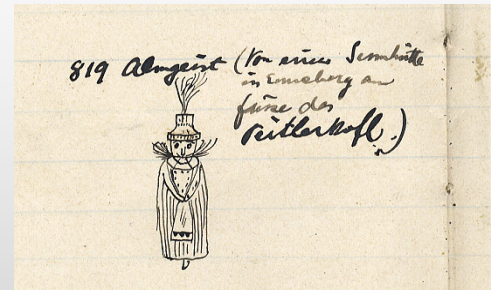 819 Almgeist (Von einer Sennhütte
in Enneberg am
füsse des
Peitlerkofl.)